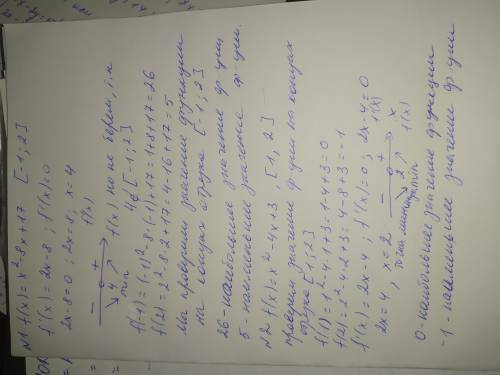 №1 f(x) = x² - 8x + 17 [-1; 2]
f'(x) = 2x - 8; f'(x) = 0
2x - 8 = 0; 2x = 8; x = 4
f'(x)
- + f(x) но не берем, т.к
4 min 4∉[-1; 2]
f(-1) = (-1)² - 8·(-1) + 17 = 1 + 8 + 17 = 26
f(2) = 2² - 8·2 + 17 = 4 - 16 + 17 = 5
Мы проверили значение функции
на концах отрезка [-1; 2]
26 - наибольшее значение ф-ции
5 - наименьшее значение ф-ции.
№2 f(x) = x² - 4x + 3, [1, 2]
проверим значение ф-ции на концах
отрезка [1; 2]
f(1) = 1² - 4·1 + 3 = 1 - 4 + 3 = 0
f(2) = 2² - 4·2 + 3 = 4 - 8 + 3 = -1
f'(x) = 2x - 4; f'(x) = 0; 2x - 4 = 0
2x = 4, x = 2 - + f'(x)
x
2 f(x)
точка минимум min
0 - наибольшее значение функции
-1 - наименьшее значение ф-ции